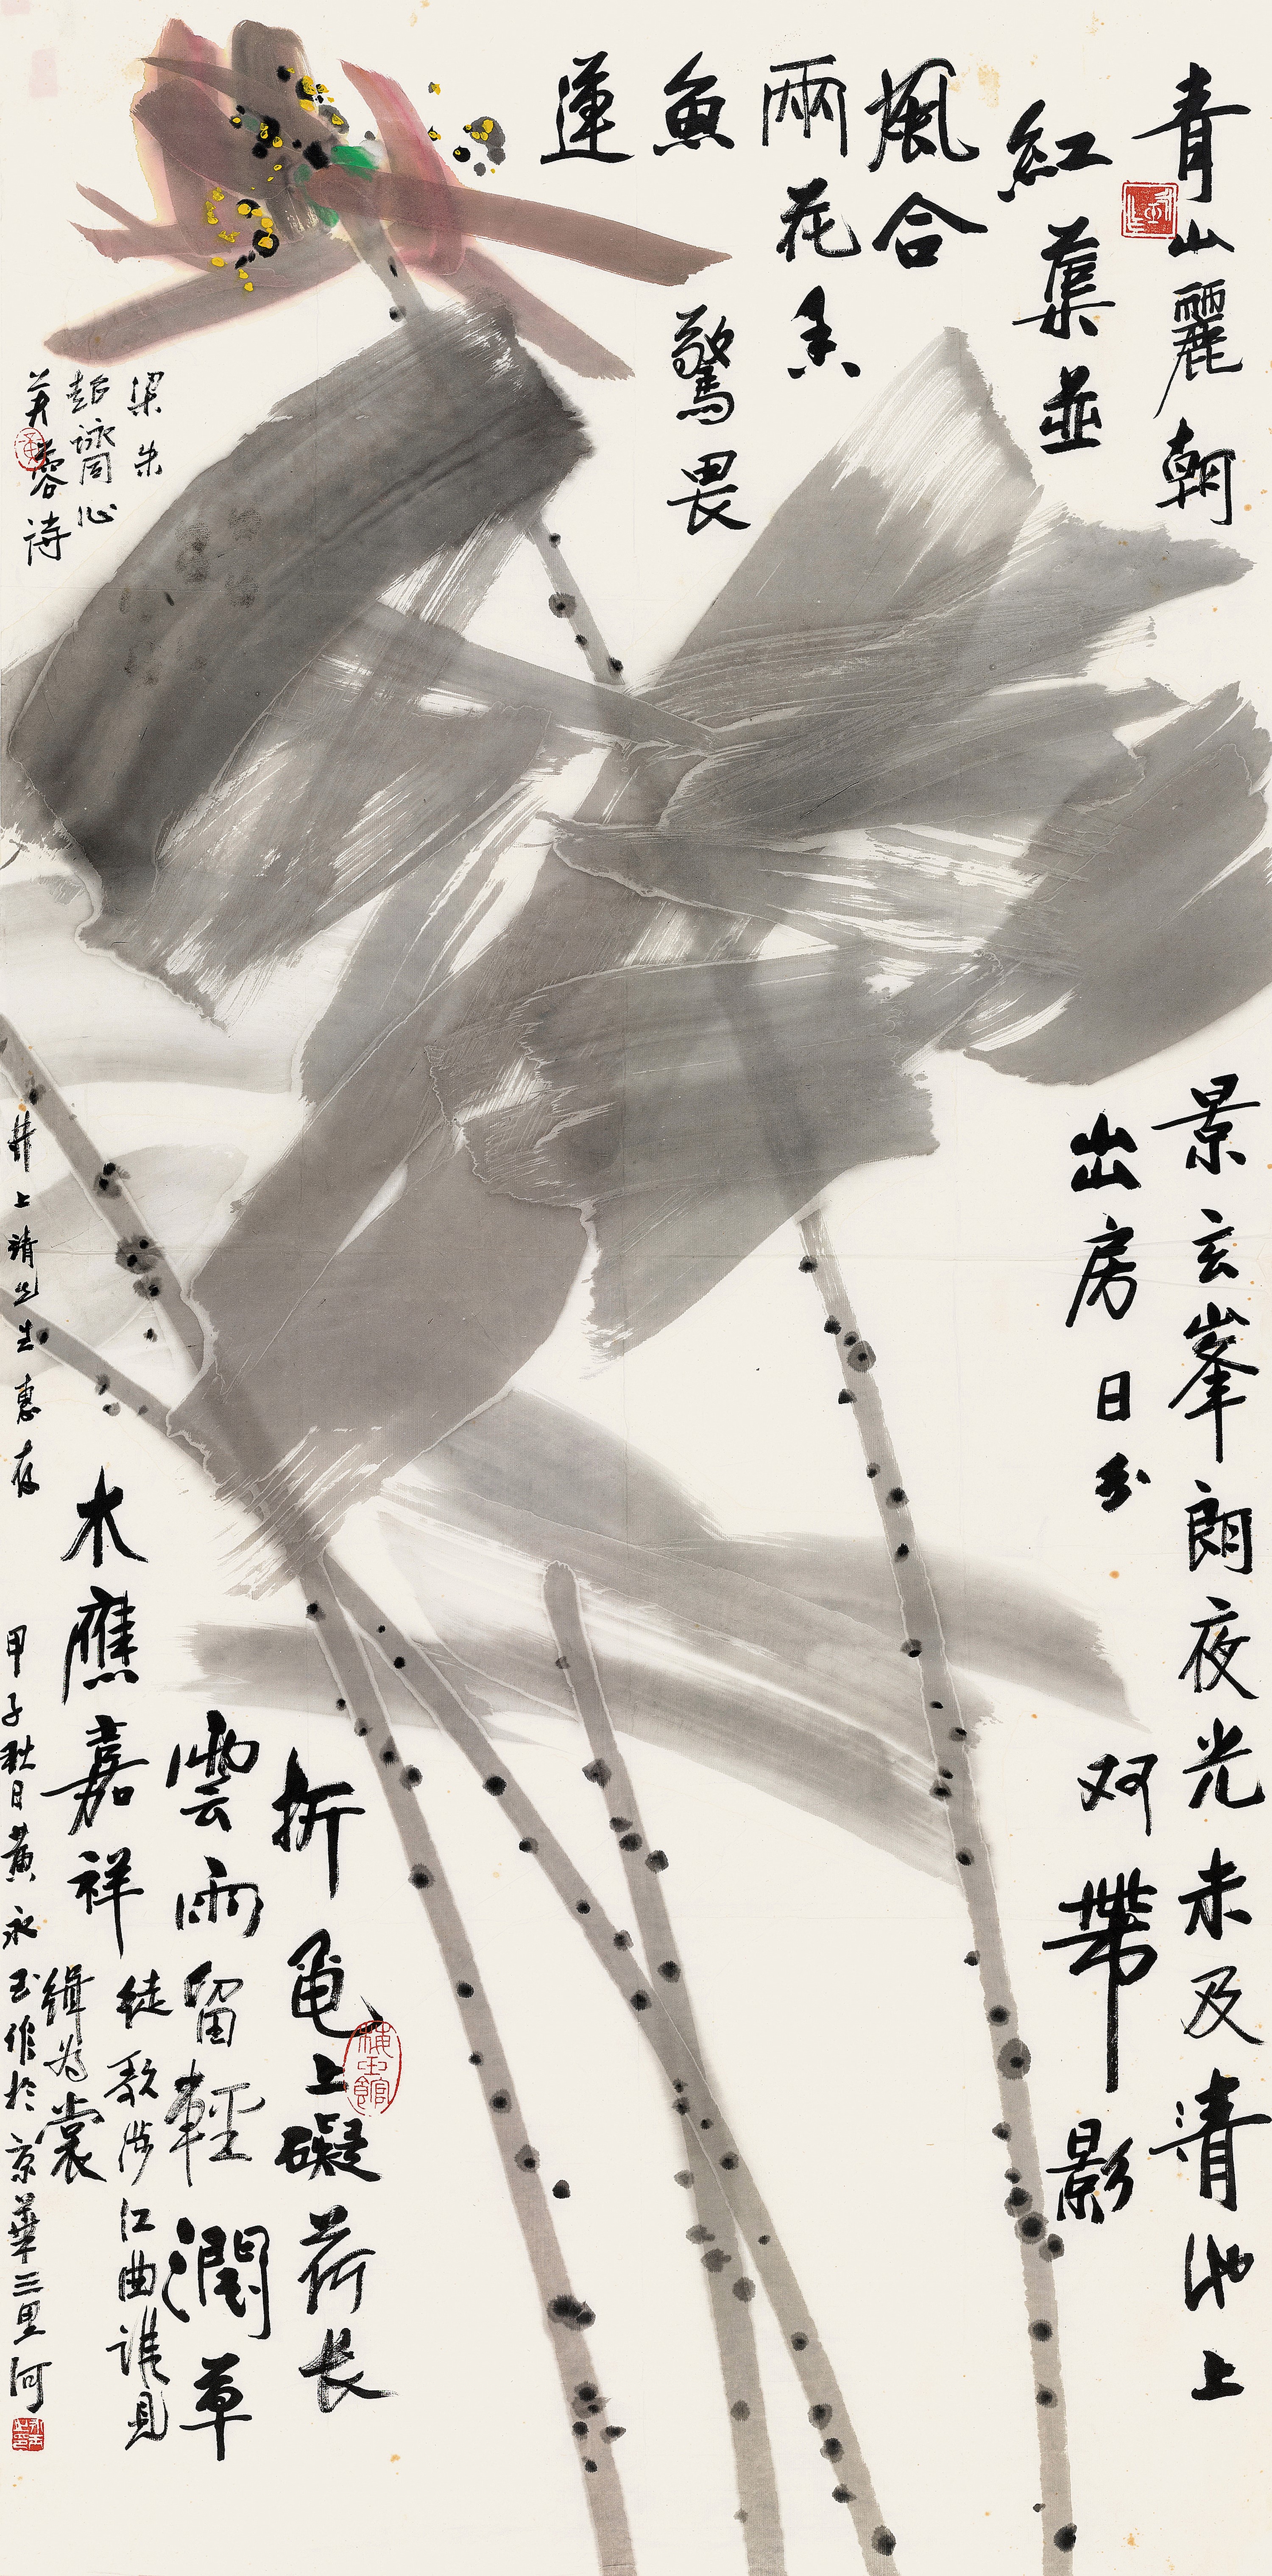 青山麗朝景玄峯朗夜光未及清池上
紅蕖並出房日分双帶影
風合
兩花香
魚驚畏
蓮
折龜上礙荷长
雲雨留輕潤草
木應嘉祥
徒歌涉江曲誰見
緝为裳
梁朱
超詠同心
芙蓉诗
井上靖先生惠存
甲子秋日黄永玉作於京華三里河